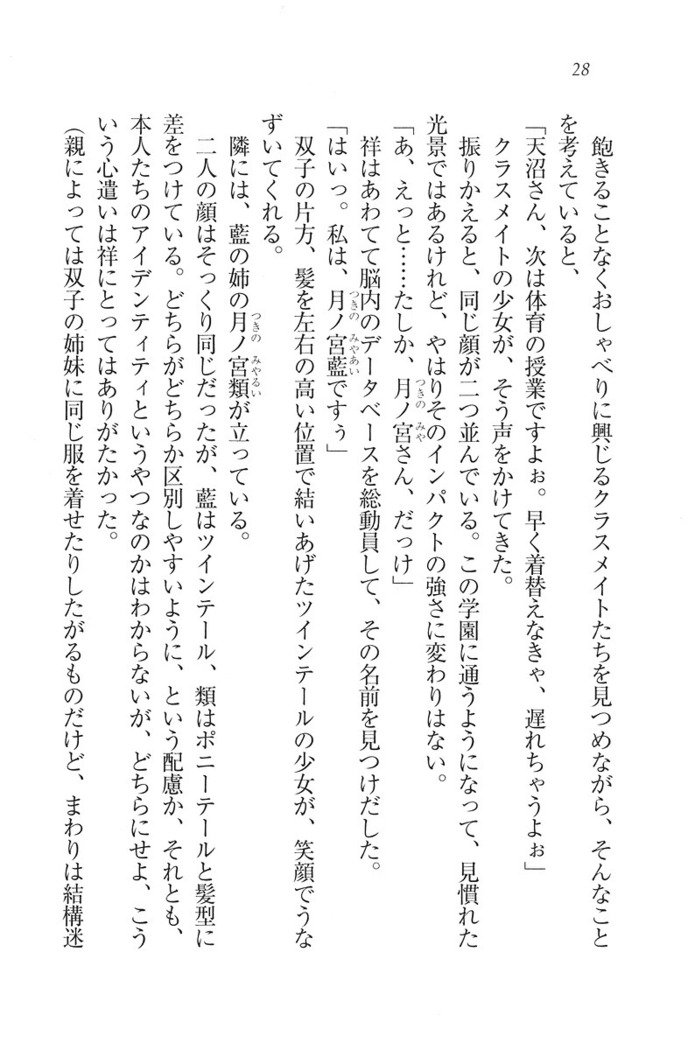 28
飽きることなくおしゃべりに興じるクラスメイトたちを見つめながら、そんなこと
を考えていると、
「天沼さん、次は体育の授業ですよぉ。早く着替えなきゃ、遅れちゃうよぉ」
クラスメイトの少女が、そう声をかけてきた。
振りかえると、同じ顔が二つ並んでいる。この学園に通うようになって、見慣れた
光景ではあるけれど、やはりそのインパクトの強さに変わりはない。
「あ、えっと……たしか、月ノ宮さん、だっけ」
つきの みや
祥はあわてて脳内のデータベースを総動員して、その名前を見つけだした。
「はいっ。私は、月ノ宮藍ですぅ」
つきの みやあい
双子の片方、髪を左右の高い位置で結いあげたツインテールの少女が、笑顔でうな
ずいてくれる。
隣には、藍の姉の月ノ宮類が立っている。
つきの みやるい
二人の顔はそっくり同じだったが、藍はツインテール、類はポニーテールと髪型に
差をつけている。どちらがどちらか区別しやすいように、という配慮か、それとも、
本人たちのアイデンティティというやつなのかはわからないが、どちらにせよ、こう
いう心遣いは祥にとってはありがたかった。
(親によっては双子の姉妹に同じ服を着せたりしたがるものだけど、まわりは結構迷